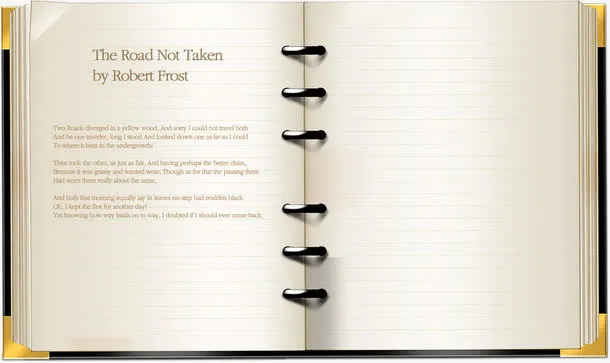 The Road Not Taken
by Robert Frost
Two Roads diverged in a yellow wood, And sorry I could not travel both
And be one traveler, long I stood And looked down one as far as I could
To where it bent in the undergrowth;
Then took the other, as just as fair, And having perhaps the better claim,
Because it was grassy and wanted wear; Though as for that the passing there
Had worn them really about the same,
And both that morning equally lay In leaves no step had trodden black.
Oh, I kept the first for another day!
Yet knowing how way leads on to way, I doubted if I should ever come back.